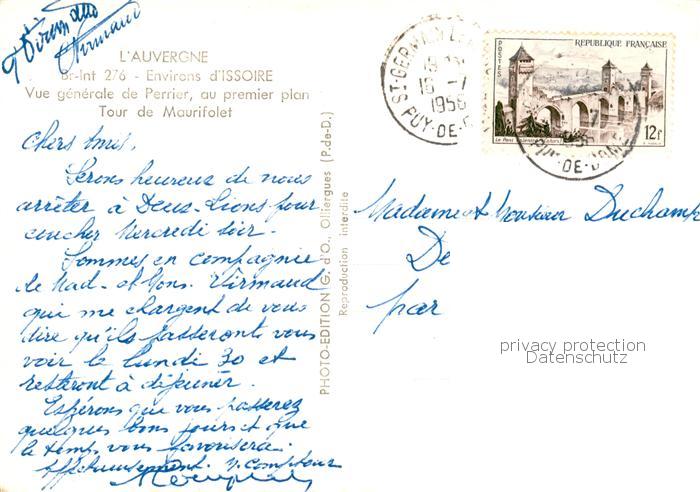 L'AUVERGNE
Br-Int 276 - Environs d'ISSOIRE
Vue générale de Perrier, au premier plan
Tour de Maurifolet
Chers Amis,
Serons heureux de nous
arrêter à Deux-Lions pour
coucher Mercredi soir.
Sommes en compagnie
de Mad- et Mons. Virmaud
qui me chargent de vous
dire qu'ils passeront vous
voir le lundi 30 et
resteront à déjeuner.
Espérons que vous passerez
quelques bons jours et que
le temps vous favorisera.
Affectueusement.
PHOTO-EDITION (G. d'O., Olliergues (P.-de-D.)
Reproduction interdite
ST-GERMAIN
16 -7
1956
PUY-DE-D
POSTES
REPUBLIQUE FRANÇAISE
12f
PUY-DE-DOME
Madame et Monsieur Duchamp
De
par
privacy protection
Datenschutz